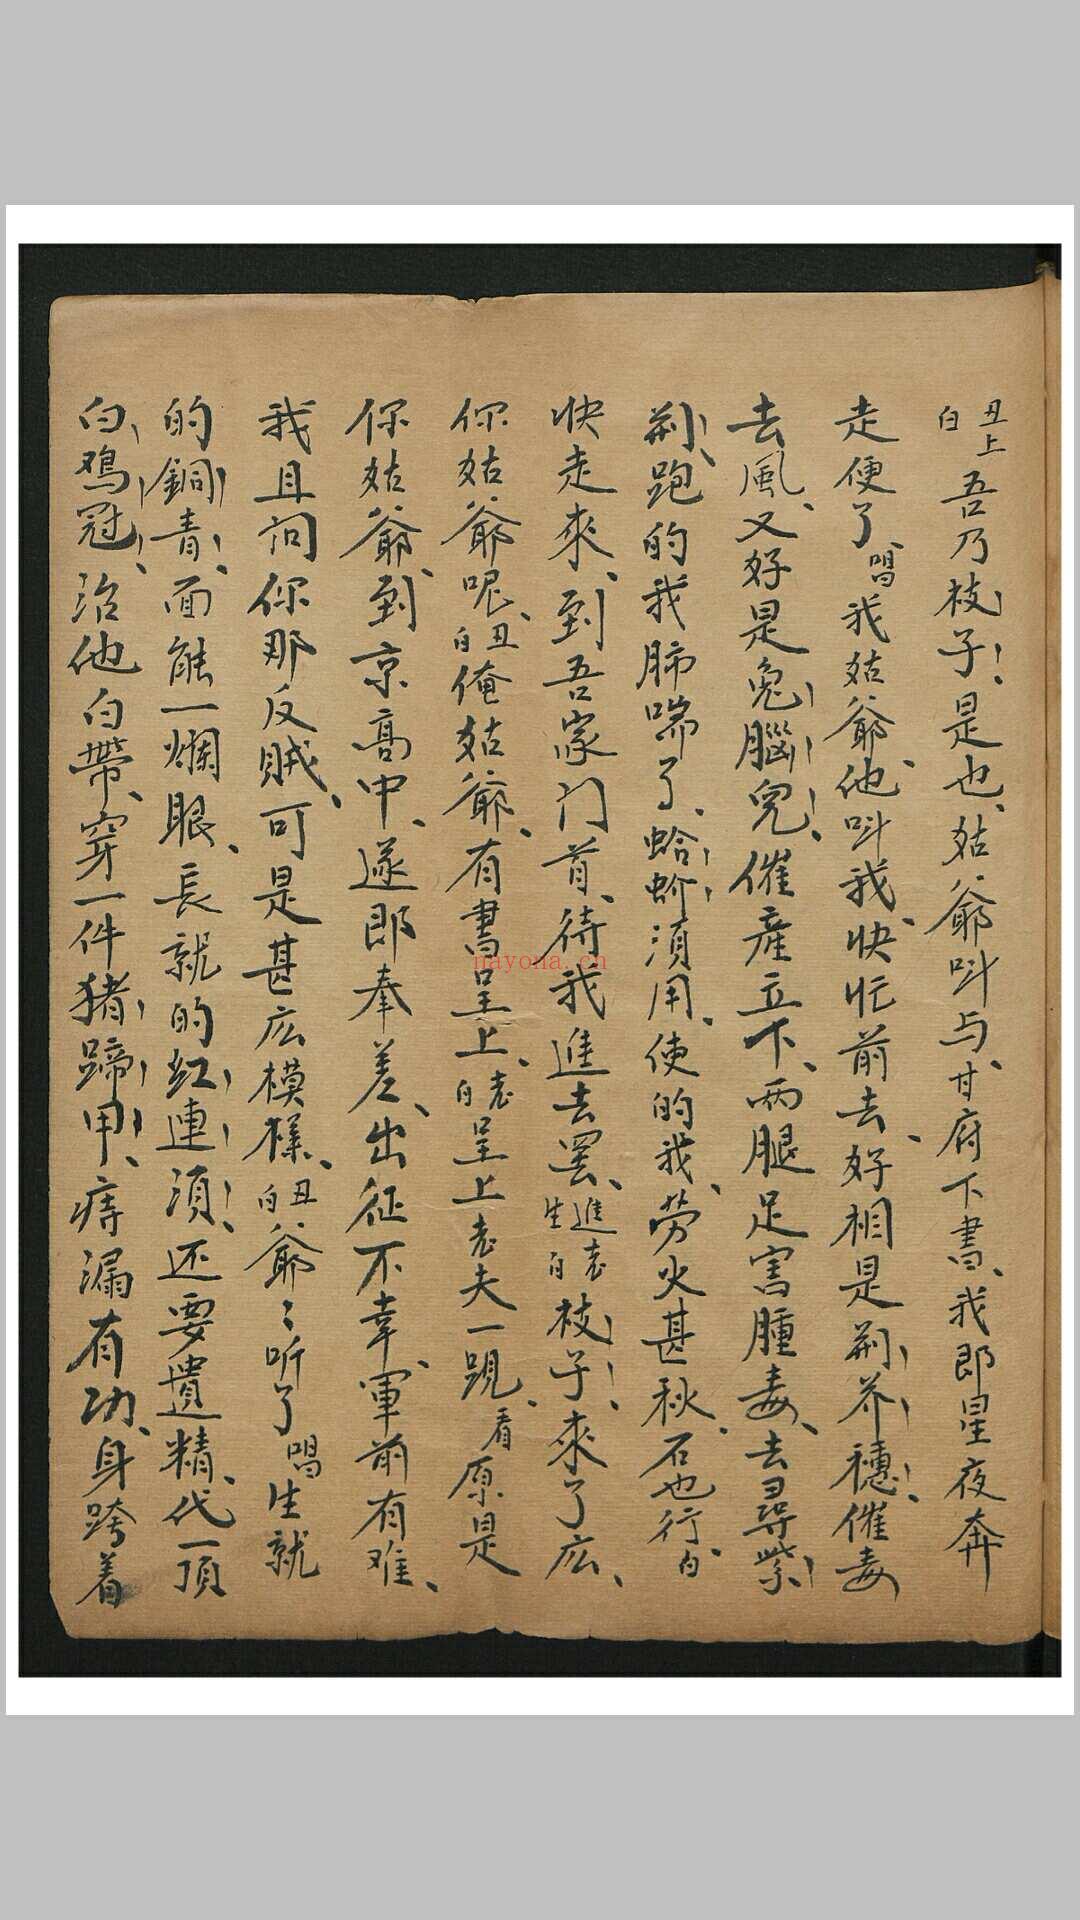 丑上白吾乃枝子是也、姑爺叫与、甘府下書、我即星夜奔
走便了、唱我姑爺、他叫我、快忙前去、好相是荊芥穗、催毒
去風、又好是兔腦兒、催產立下、兩腿足害腫毒、去尋紫
荊、跑的我肺喘了、蛤蚧湏用、使的我、劳火甚秋、石也行、白
快走來、到吾家门首、待我進去罢、進生老白枝子來了広、
你姑爺呢、丑白俺姑爺、有書呈上、老白呈上老夫一覌、看原是
你姑爺、到京高中、遂即奉差、出征不幸、軍前有难、
我且问你那反賊、可是甚広模樣、丑白爺〻听了唱生就
的銅青、面能一爛眼、長就的红連湏、还要遺精、代一頂
白鸡冠、治他白帶、穿一件猪蹄甲、痔漏有功、身跨着
nayona.cn